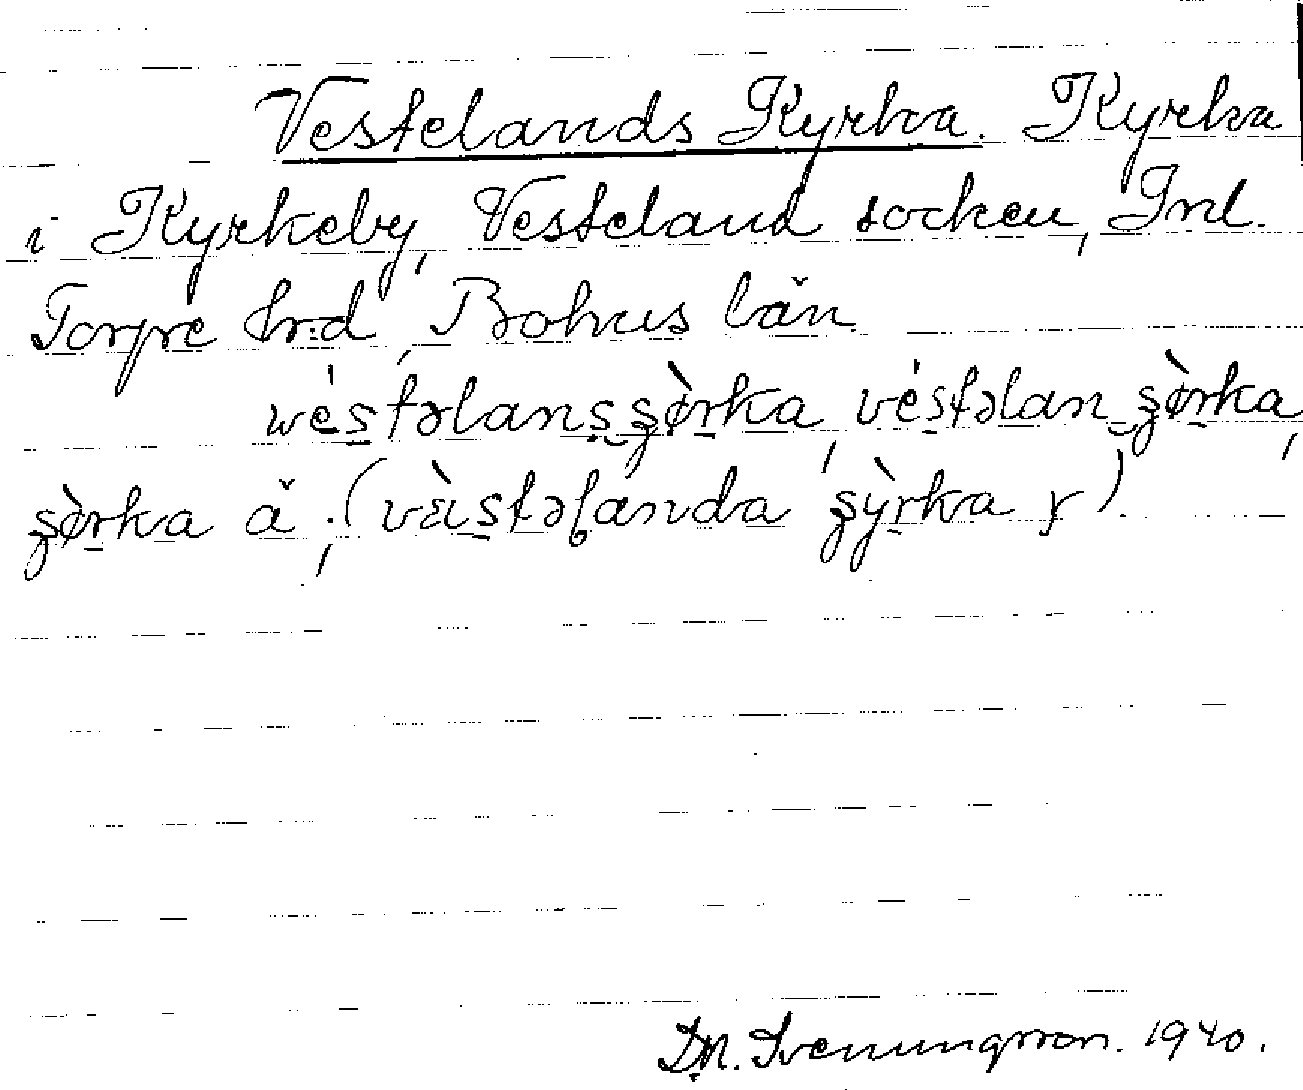 Vestelands Kyrka. Kyrka
i Kyrkeby, Vesteland socken, Inl.
Torpe hrd, Bohus län.
wéstəlansşø̀rka, véstəlan şø̀rka,
şø̀rka ǎ; (vὲstəlanda şỳrka γ).
D.N. Svenungsson. 1940.